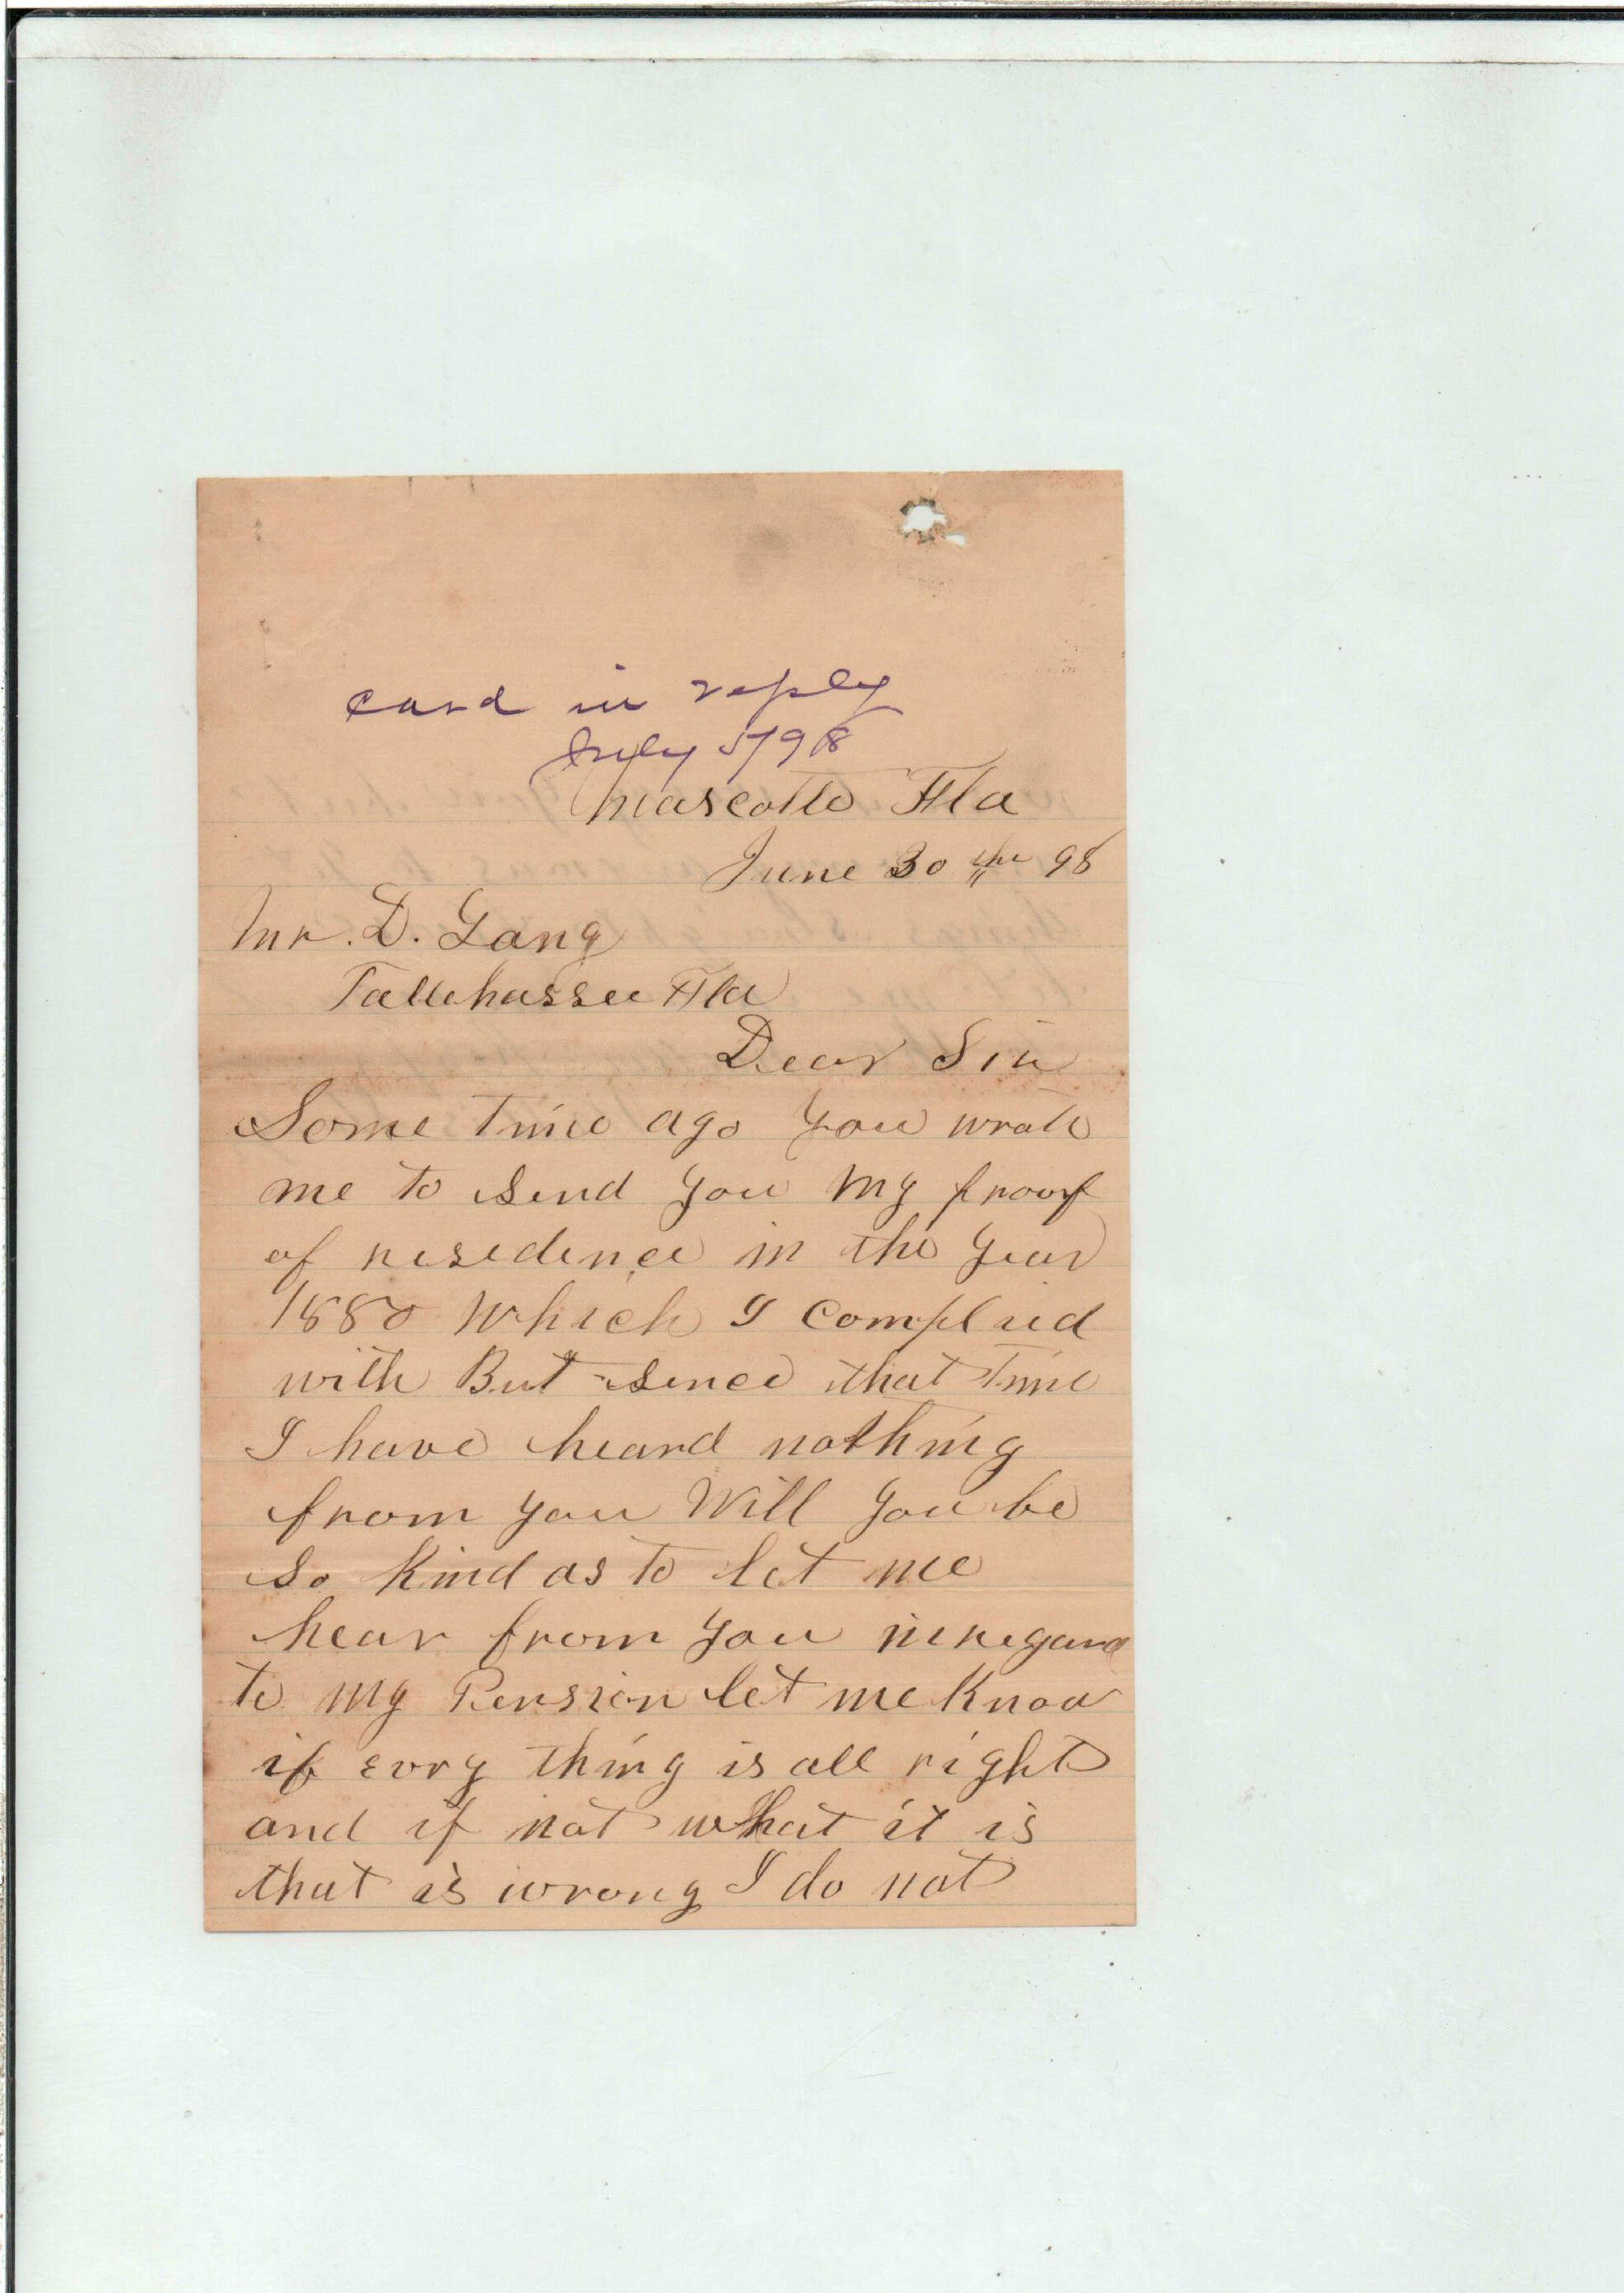 card in reply
July 5/98
Mascotte Fla
June 30th 98
Mr. D. Lang
Tallehassee Fla
Dear Sir
Some Time ago you wrote
me to send you my proof
of residence in the year
1880 Which I complied
with But sence that Time
I have heard nothing
from you Will you be
so kind as to let me
hear from you in regard
to my Pension let me know
if evry thing is all right
and if not what it is
that is wrong I do not